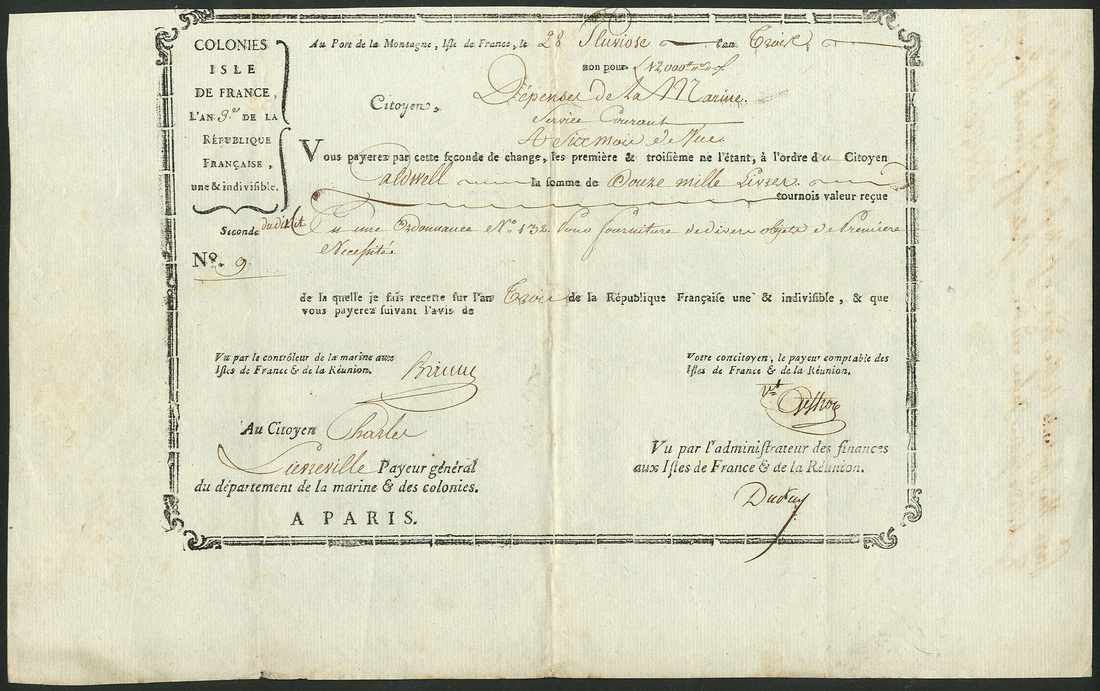 COLONIES
ISLE
DE FRANCE,
L'AN 3.e DE LA
RÉPUBLIQUE
FRANÇAISE,
une & indivisible.
Seconde du dixit
No. 9
Au Port de la Montagne, Isle de France, le 28 Pluviose l'an Trois,
Bon pour 12000
Citoyen,
Dépenses de la Marine.
Service Courant
A Six mois de Vue.
Vous payerez par cette seconde de change, les première & troisième ne l'étant, à l'ordre du Citoyen
Caldwell la somme de Douze mille Livres.
tournois valeur reçue
En une Ordonnance No. 132. Pour fourniture de divers objets de Première
Necessité
de la quelle je fais recette sur l'an Trois de la République Française une & indivisible, & que
vous payerez suivant l'avis de
Vu par le contrôleur de la marine aux
Isles de France & de la Réunion.
Votre concitoyen, le payeur comptable des
Isles de France & de la Réunion.
Au Citoyen Charles
Lieneville Payeur général
du département de la marine & des colonies.
A PARIS.
Vu par l'administrateur des finances
aux Isles de France & de la Réunion.
Dupuy